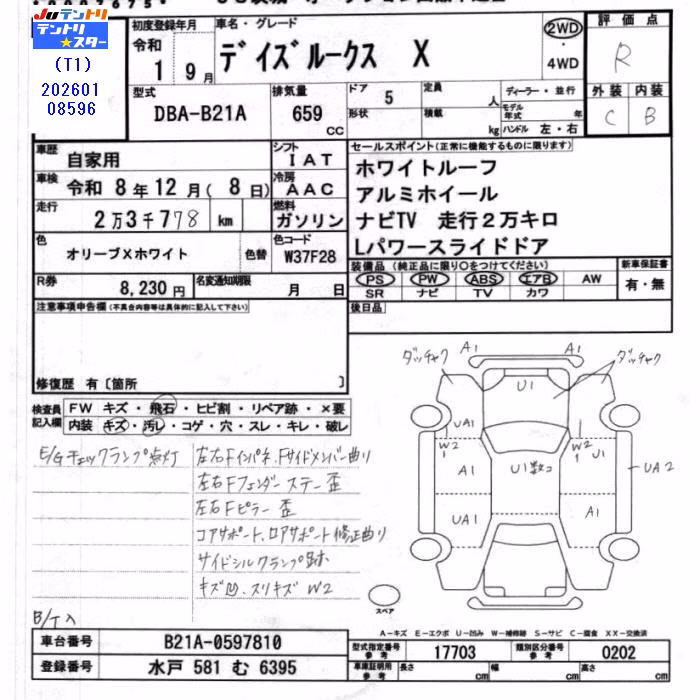 JUテントリ
テントリ★スター
(T1)
202601
08596
初度登録年月
令和
1 9月
車名・グレード
デイズルークス X
2WD
4WD
評価点
R
外装 内装
C B
型式
DBA-B21A
排気量
659
CC
ドア
5
形状
定員
人
積載
kg
ディーラー・並行
モデル年式 年
ハンドル 左・右
車歴
自家用
シフト
IAT
車検
令和 8年12月( 8日)
冷房
AAC
走行
2万3千778 km
燃料
ガソリン
色
オリーブXホワイト
色替
色コード
W37F28
R券
8,230円
名変通知期限
月 日
セールスポイント(正常に機能するものに限ります)
ホワイトルーフ
アルミホイール
ナビTV 走行2万キロ
Lパワースライドドア
装備品(純正品に限り○をつけてください)
PS PW ABS エアB AW
SR ナビ TV カワ
新車保証書
有・無
後日品
注意事項申告欄(不具合内容等は具体的に記入して下さい)
修復歴 有〔箇所 〕
検査員記入欄
FW キズ・飛石・ヒビ割・リペア跡・×要
内装 キズ・汚レ・コゲ・穴・スレ・キレ・破レ
E/Gチェックランプ点灯
左右Fインパネ、Fサイドメンバー曲り
左右Fフェンダーステー歪
左右Fピラー歪
コアサポート、ロアサポート修正曲り
サイドシルクランプ跡
キズ凹、スリキズ W2
B/T入
ダッチャク A1 A1 ダッチャク
U1
UA1 W2 W2 U1
A1 U1数コ UA2
UA1 A1
スペア
A-キズ E-エクボ U-凹み W-補修跡 S-サビ C-腐食 XX-交換済
車台番号 B21A-0597810
登録番号 水戸 581 む 6395
型式指定番号 参考 17703
類別区分番号 参考 0202
車庫証明用 参考
長さ cm 幅 cm 高さ cm